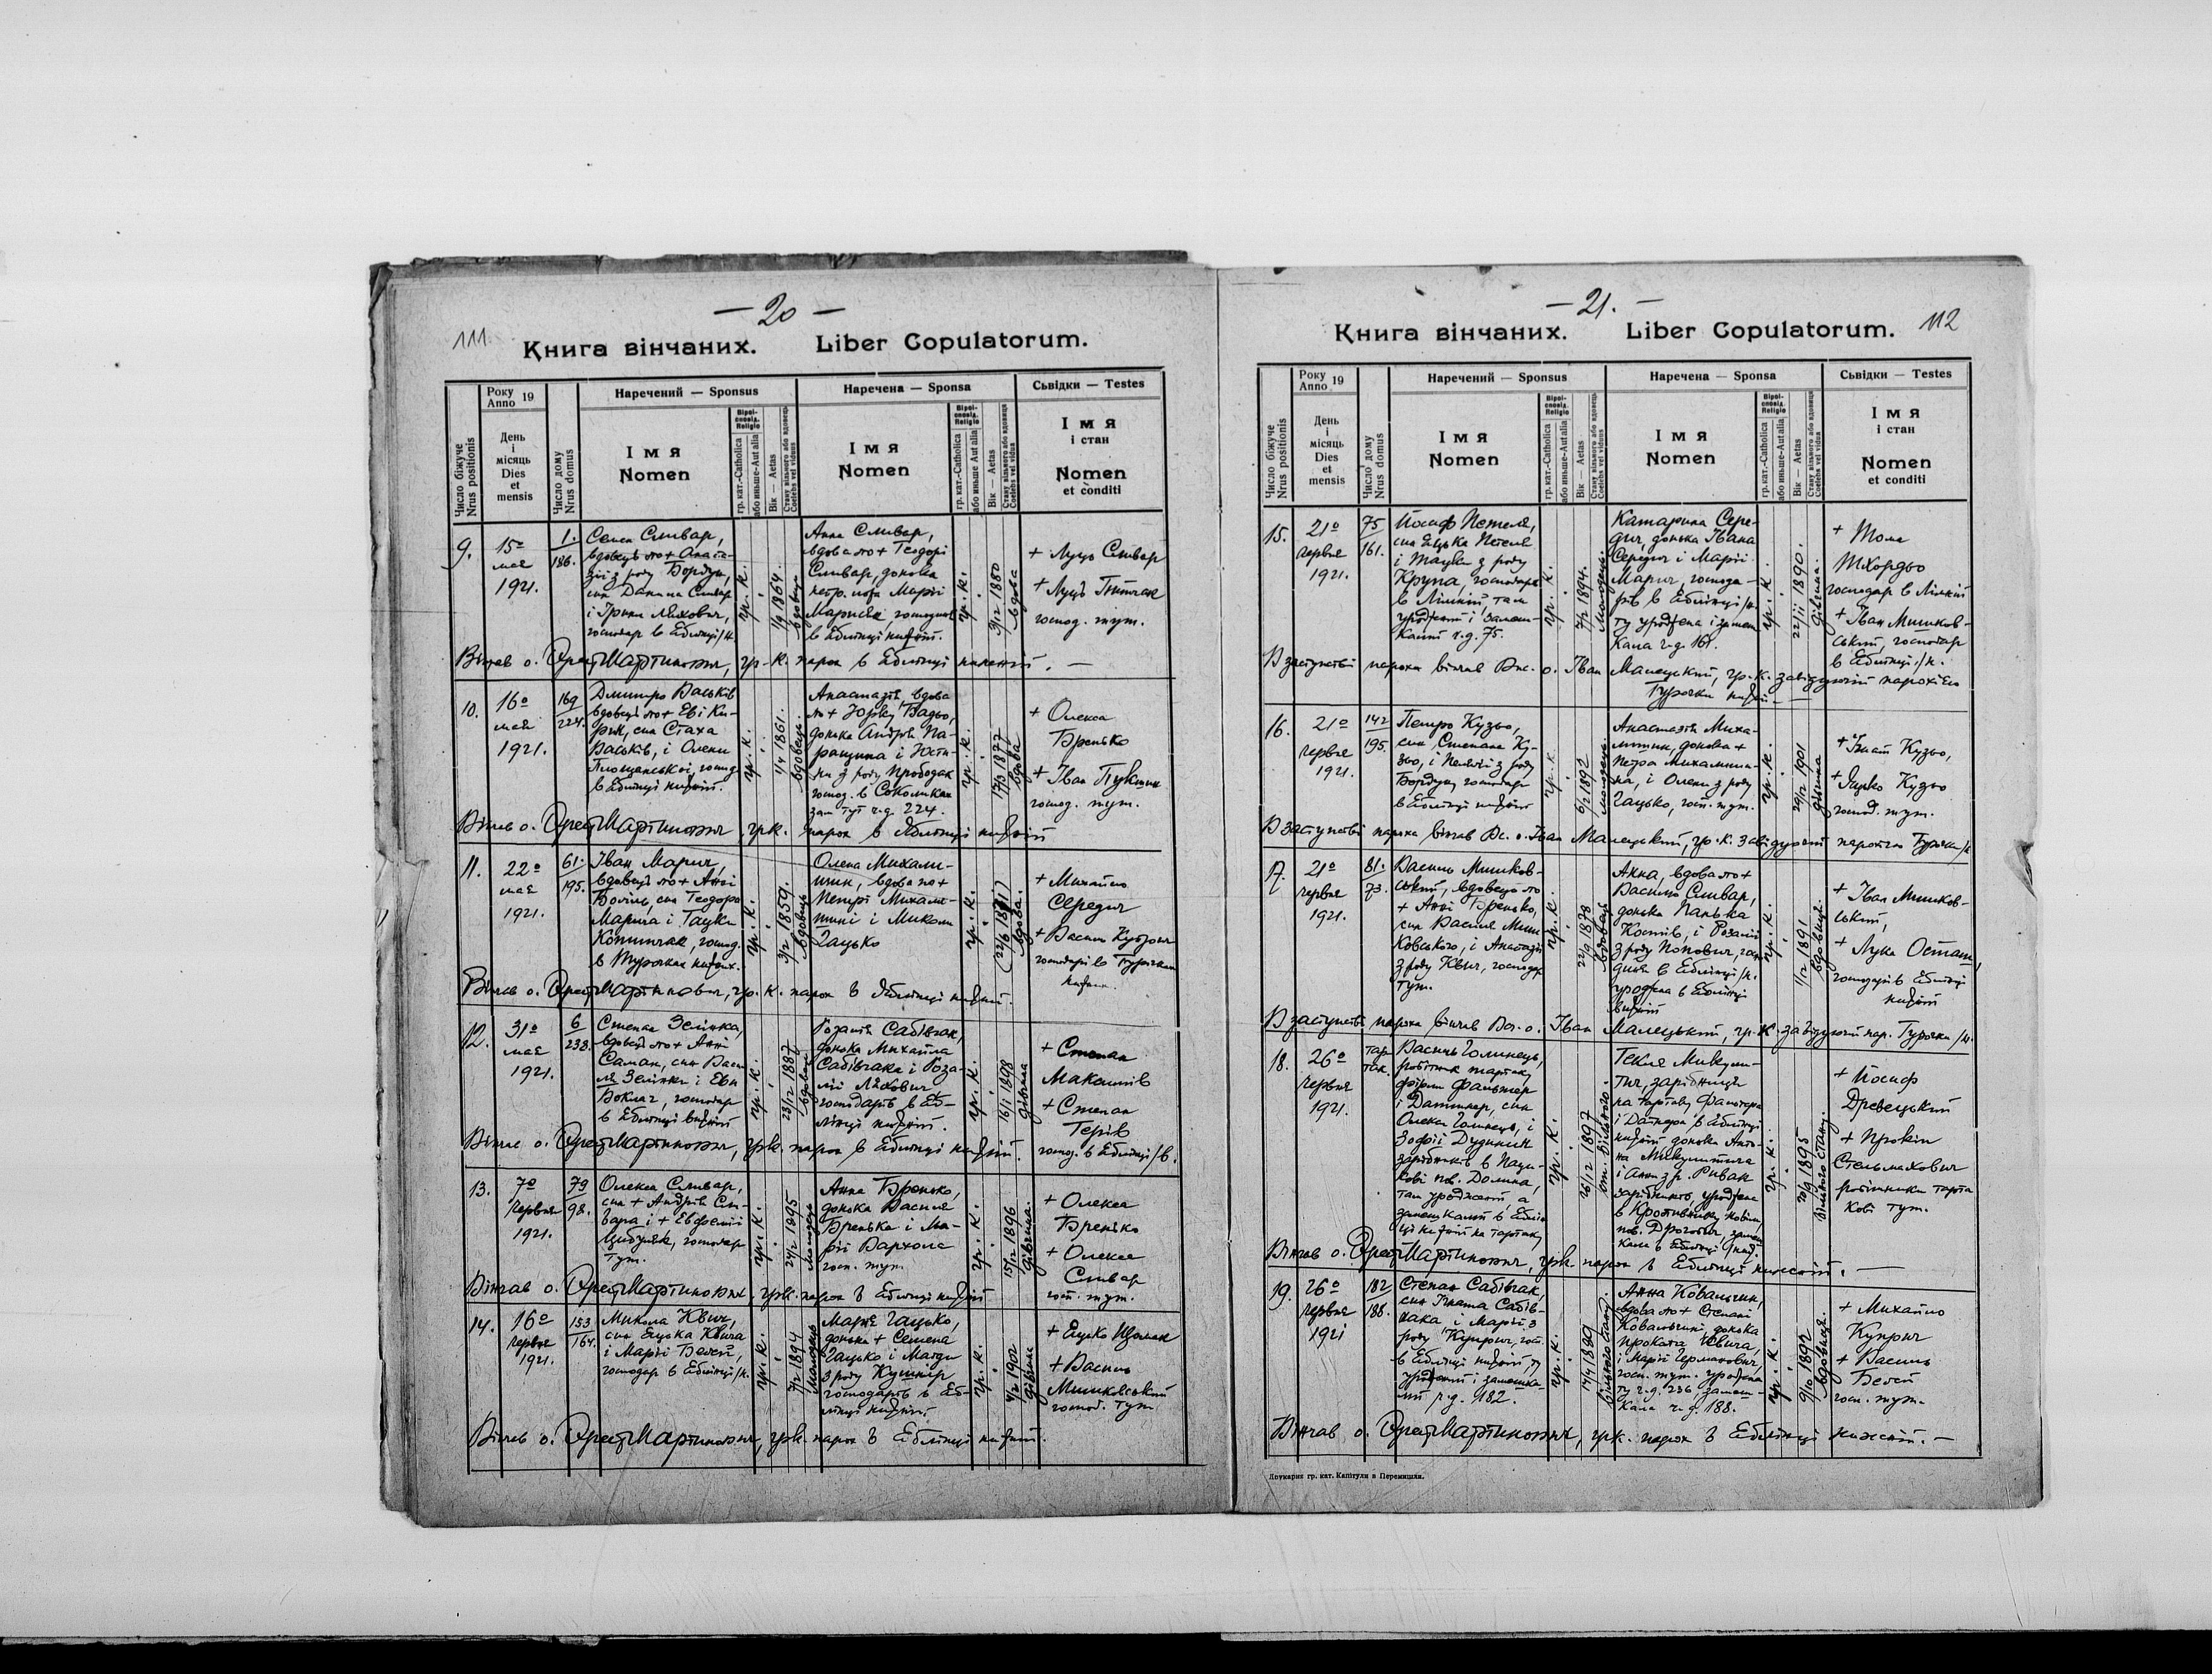 — 20 —
111.
Книга вінчаних. Liber Copulatorum.
Число біжуче
Nrus positionis
Року
Anno 19
День
і
місяць
Dies
et
mensis
Число дому
Nrus domus
Наречений — Sponsus
Імя
Nomen
Віроісповід.
Religio
гр. кат.-Catholica
або иньше-Aut alia
Вік — Aetas
Стану вільного або вдовець
Coelebs vel viduus
Наречена — Sponsa
Імя
Nomen
гр. кат.-Catholica
або иньше Aut alia
Вік — Aetas
Стану вільного або вдовиця
Coelebs vel vidua
Сьвідки — Testes
Імя
і стан
Nomen
et conditi
9. 15º мая 1921. 1. 186.
Семен Сливар,
вдовець по + Анаста-
зиї з роду Бордун,
син Данила Сливар
і Ірини Ляхович,
господар в Яблінці/н.
гр. к.
1/9 1864.
вдовець
Анна Сливар,
вдова по + Теодорі
Сливар, донька
Марії
в Яблінці нижній.
гр. к.
1880
вдова
+ Луць Сливар
+ Луць
господ. тут.
Вінчав о. Орест Мартинович, гр.-к. парох в Яблінці нижній. —
10. 16º мая 1921. 169 224.
Дмитро Васьків
вдовець по + Еві Ки-
рик, син Стаха
Васьків, і Олени
господ.
в Яблінці нижній.
гр. к.
1/4 1861.
вдовець.
Анастазія вдова
по + Юрку Бадьо,
донька Андрія Па-
ращина і Юсти-
ни з роду
господ. в Соколиках
зам. тут ч.д. 224.
гр. к.
17/3 1877
вдова
+ Олекса
Бренько
+ Іван
господ. тут.
Вінчав о. Орест Мартинович, гр.к. парох в Яблінці нижній
11. 22º мая 1921. 61. 195.
Іван Марич,
вдовець по + Анні
син Теодора
Марича і Тацки
Копитчак, господ.
в Турочках нижн.
гр. к.
3/2 1859.
вдовець
Олена Михали-
шин, вдова по +
Петрі Михали-
шині і Миколи
Гацько
гр. к.
вдова.
+ Михайло
Середич
+ Василь
господарі в Турочках
нижн.
Вінчав о. Орест Мартинович, гр. к. парох в Яблінці нижній.
12. 31º мая 1921. 6 238.
Степан Зелінка,
вдовець по + Анні
Саман, син Васи-
ля Зелінки і Еви
господар
в Яблінці вижній
гр. к.
23/12 1887
вдовець
Розалія Сабівчак,
донька Михайла
Сабівчака і Роза-
лії Ляхович
господарів в Яб-
лінці нижній.
гр. к.
16/1 1898
дівчина
+ Степан
Максимів
+ Степан
Терлів
господ. в Яблінці/в.
Вінчав о. Орест Мартинович, гр.к. парох в Яблінці нижній.
13. 7º червня 1921. 79 98.
Олекса Сливар,
син + Андрія Сли-
вара і + Евфемії
Цибуляк, господар
тут.
гр. к.
24/2 1895
молодець
Анна Бренько,
донька Василя
Бренька і Ма-
рії Вархола
госп. тут.
гр. к.
15/12 1896
дівчина.
+ Олекса
Бренько
+ Олекса
Сливар
госп. тут.
Вінчав о. Орест Мартинович, гр.к. парох в Яблінці нижній
14. 16º червня 1921. 153 164.
Микола Квич,
син Яцька Квича
і Марії Белей,
господар в Яблінці/н.
гр. к.
7/2 1894
молодець
Марія Гацько,
донька + Семена
Гацько і Магди
з роду Кушнір
господарів в Яб-
лінці нижній.
гр. к.
4/2 1902
дівчина
+ Яцко Щомак
+ Василь
Мишковський
господ. тут.
Вінчав о. Орест Мартинович, гр.к. парох в Яблінці нижній.
— 21. —
112
Книга вінчаних. Liber Copulatorum.
Число біжуче
Nrus positionis
Року
Anno 19
День
і
місяць
Dies
et
mensis
Число дому
Nrus domus
Наречений — Sponsus
Імя
Nomen
Віроісповід.
Religio
гр. кат.-Catholica
або иньше-Aut alia
Вік — Aetas
Стану вільного або вдовець
Coelebs vel viduus
Наречена — Sponsa
Імя
Nomen
Віроісповід.
Religio
гр. кат.-Catholica
або иньше-Aut alia
Вік — Aetas
Стану вільного або вдовиця
Coelebs vel vidua
Сьвідки — Testes
Імя
і стан
Nomen
et conditi
15. 21º червня 1921. 75 161.
Йосиф Петеля,
син Яцька Петелі
і Тацки з роду
Крупа, господар
в Лінині, там
уроджений і замеш-
калий ч.д. 75.
гр. к.
7/2 1894.
молодець
Катарина Сере-
дич, донька Івана
Середич і Марії
Марич, господа-
рів в Яблінці/н.
ту уроджена і замеш-
кала ч.д. 161.
гр. к.
22/11 1890.
дівчина.
+ Тома
Тхордьо
господар в Лінині
+ Іван Мишков-
ський, господар
в Яблінці/н.
В заступстві пароха вінчав Вс. о. Іван Малецький, гр.-к. завідуючий парохією
Турочки нижні —
16. 21º червня 1921. 142 195.
Петро Кузьо,
син Степана Ку-
зьо, і Пелагії з роду
Бордун, господар
в Яблінці нижній
гр. к.
6/2 1892
молодець
Анастазія Миха-
лишин, донька +
Петра Михалиши-
на, і Олени з роду
Гацько, госп. тут.
гр. к.
29/12 1901
дівчина
+ Гнат Кузьо,
+ Яцько Кузьо
господ. тут.
В заступстві пароха вінчав Вс. о. Іван Малецький, гр.-к. завідуючий парохією Турочки/н
17. 21º червня 1921. 81. 73.
Василь Мишков-
ський, вдовець по
+ Анні Бренько,
син Василя Миш-
ковського, і Анастазії
з роду Квич, господар
тут.
гр. к.
22/9 1878
вдовець
Анна, вдова по +
Василю Сливар,
донька Панька
Костів, і Розалії
з роду Попович, госпо-
диня в Яблінці/н.
уроджена в Яблінці
вижній
гр. к.
1/2 1891
вдовиця.
+ Іван Мишков-
ський,
+ Лука Осташ,
господарі в Яблінці
нижній
В заступстві пароха вінчав Вс. о. Іван Малецький, гр.-к. завідуючий пар. Турочки/н.
18. 26º червня 1921. тар-
так.
Василь Голинець,
робітник тартаку
фірми Фальтер
і Даттнер, син
Олекси Голинець, і
Зофії Дудиник
зарібників в
пов. Долина,
там уроджений, а
замешкалий в Яблін-
ці нижній на тартаку
гр. к.
26/12 1897
ст. вільного.
Текля Микули-
тич, зарібниця
на тартаку Фальтера
і Датнера в Яблінці
нижній донька Анто-
на Микулитича
і Анни з р. Рибак
зарібників, уроджена
в Кропивнику новім
пов. Дрогобич, замеш-
кала в Яблінці/ниж.
гр. к.
20/9 1895
вільного стану.
+ Йосиф
Древецький
+ Прокіп
Стельмахович
робітники тарта-
кові тут.
Вінчав о. Орест Мартинович, гр.к. парох в Яблінці нижній. —
19. 26º червня 1921 182 188.
Степан Сабівчак,
син Гната Сабів-
чака і Марії з
роду Куприч, госп.
в Яблінці нижній, ту
уроджений і замешка-
лий ч.д. 182.
гр. к.
17/4 1889
вільного стану.
Анна Ковальчин,
вдова по + Степані
Ковальчині, донька
Прокопа Квича,
і Марії Германович,
госп. тут. уроджена
ту ч.д. 236, замеш-
кала ч.д. 188.
гр. к.
9/10 1892
вдовиця.
+ Михайло
Куприч
+ Василь
Белей
госп. тут.
Вінчав о. Орест Мартинович, гр.к. парох в Яблінці нижній. —
Друкарня гр. кат. Капітули в Перемишли.